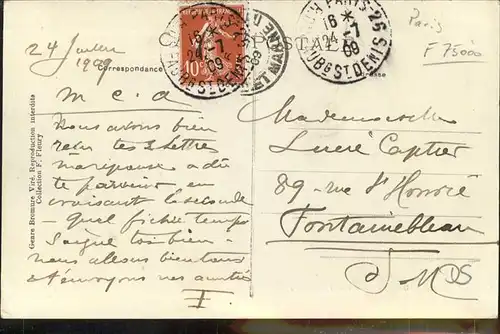 CARTE POSTALE
PARIS-26
16*
24-7
09
R. DU FAUBG ST DENIS
Paris
F 75000
24 Juillet
1909
Correspondance
Adresse
10c
m c a
Nous avons bien
reçu tes 2 lettres
mariposa a dû
te parvenir en
croisant la seconde
quel fichu temps
Soigne toi bien
nous allons bien tous
et t'envoyons nos amitiés
F
Mademoiselle
Lucie Captier
89 rue St Honoré
Fontainebleau
S. M
Genre Bromure Viré. Reproduction interdite
Collection F. Fleury